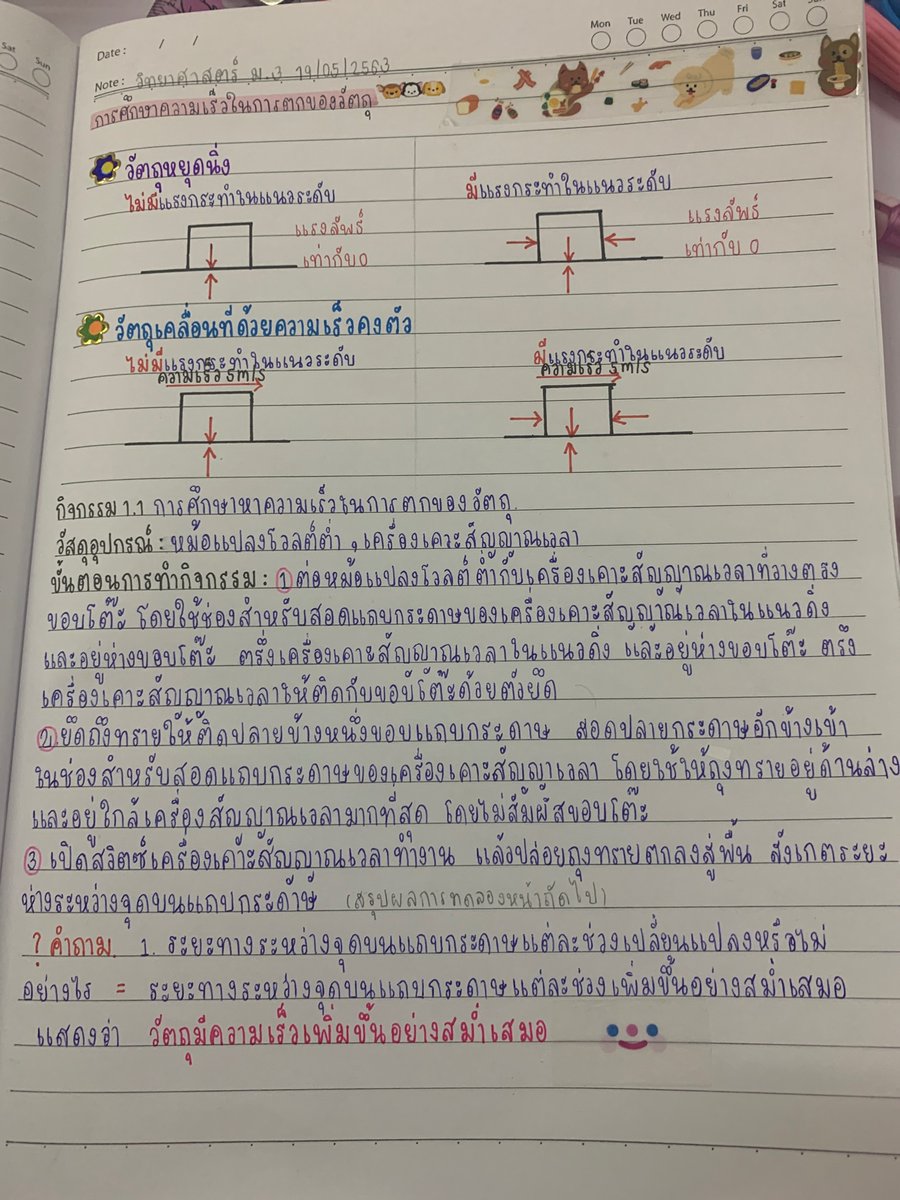 Sat
Sun
Date : / /
Mon Tue Wed Thu Fri Sat Sun
Note : วิทยาศาสตร์ ม.3 19/05/2563
การศึกษาความเร็วในการตกของวัตถุ
วัตถุหยุดนิ่ง
ไม่มีแรงกระทำในแนวระดับ
มีแรงกระทำในแนวระดับ
แรงลัพธ์
เท่ากับ 0
แรงลัพธ์
เท่ากับ 0
วัตถุเคลื่อนที่ด้วยความเร็วคงตัว
ไม่มีแรงกระทำในแนวระดับ
ความเร็ว 5 m/s
มีแรงกระทำในแนวระดับ
ความเร็ว 5 m/s
กิจกรรม 1.1 การศึกษาหาความเร็วในการตกของวัตถุ
วัสดุอุปกรณ์ : หม้อแปลงโวลต์ต่ำ , เครื่องเคาะสัญญาณเวลา
ขั้นตอนการทำกิจกรรม : 1 ต่อหม้อแปลงโวลต์ต่ำกับเครื่องเคาะสัญญาณเวลาที่วางตรง
ขอบโต๊ะ โดยใช้ช่องสำหรับสอดแถบกระดาษของเครื่องเคาะสัญญาณเวลาในแนวดิ่ง
และอยู่ห่างขอบโต๊ะ ตรึงเครื่องเคาะสัญญาณเวลาในแนวดิ่ง และอยู่ห่างขอบโต๊ะ ตรึง
เครื่องเคาะสัญญาณเวลาให้ติดกับขอบโต๊ะด้วยตัวยึด
2 ยึดถุงทรายให้ติดปลายข้างหนึ่งขอบแถบกระดาษ สอดปลายกระดาษอีกข้างเข้า
ในช่องสำหรับสอดแถบกระดาษของเครื่องเคาะสัญญาเวลา โดยใช้ให้ถุงทรายอยู่ด้านล่าง
และอยู่ใกล้เครื่องสัญญาณเวลามากที่สุด โดยไม่สัมผัสขอบโต๊ะ
3 เปิดสวิตซ์เครื่องเคาะสัญญาณเวลาทำงาน แล้วปล่อยถุงทรายตกลงสู่พื้น สังเกตระยะ
ห่างระหว่างจุดบนแถบกระดาษ (สรุปผลการทดลองหน้าถัดไป)
? คำถาม 1. ระยะทางระหว่างจุดบนแถบกระดาษแต่ละช่วงเปลี่ยนแปลงหรือไม่
อย่างไร = ระยะทางระหว่างจุดบนแถบกระดาษแต่ละช่วงเพิ่มขึ้นอย่างสม่ำเสมอ
แสดงว่า วัตถุมีความเร็วเพิ่มขึ้นอย่างสม่ำเสมอ